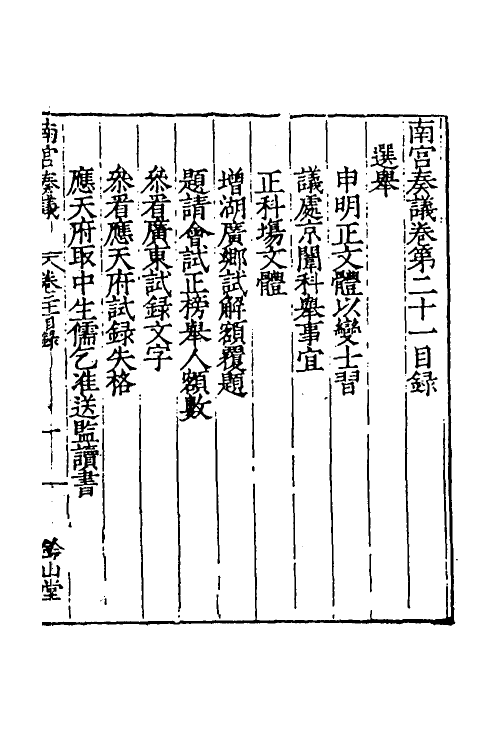 南宫奏議卷第二十一目録
選舉
申明正文體以變士習
議處京闈科舉事宜
正科塲文體
增湖廣鄉試解額覆題
題請會試正榜舉人額數
叅看廣東試録文字
叅看應天府試録失格
應天府取中生儒乞准送監讀書
南宫奏議 卷二十一目録 一 鈐山堂